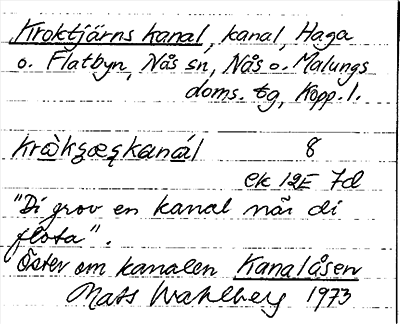 Kroktjärns kanal, kanal, Haga
o. Flatbyn, Nås sn, Nås o. Malungs
doms. tg, Kopp. l.
8
ek 12E 7d
"Di grov en kanal när di
flota".
Öster om kanalen Kanalåsen
Mats Wahlberg 1973